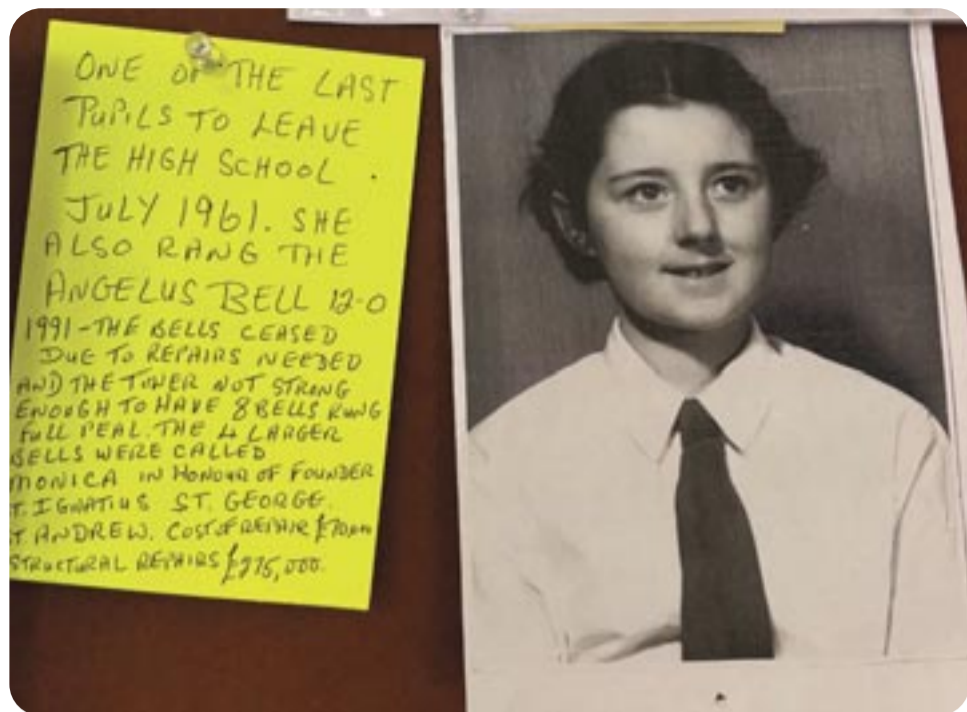 ONE OF THE LAST
PUPILS TO LEAVE
THE HIGH SCHOOL .
JULY 1961. SHE
ALSO RANG THE
ANGELUS BELL 12-0
1991-THE BELLS CEASED
DUE TO REPAIRS NEEDED
AND THE TOWER NOT STRONG
ENOUGH TO HAVE 8 BELLS RUNG
FULL PEAL. THE 4 LARGER
BELLS WERE CALLED
MONICA IN HONOUR OF FOUNDER
T. IGNATIUS ST. GEORGE.
T. ANDREW. COST OF REPAIR
STRUCTURAL REPAIRS £275,000.